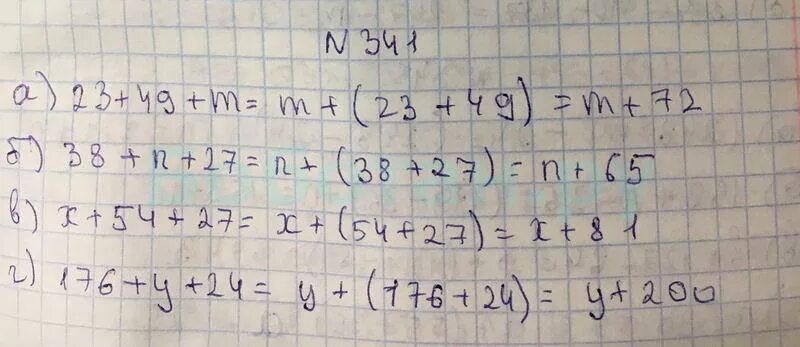 N 341
а) 23+49+m= m+(23+49)=m+72
б) 38+n+27=n+(38+27)=n+65
в) x+54+27= x+(54+27)=x+81
г) 176+y+24= y+(176+24)= y+200